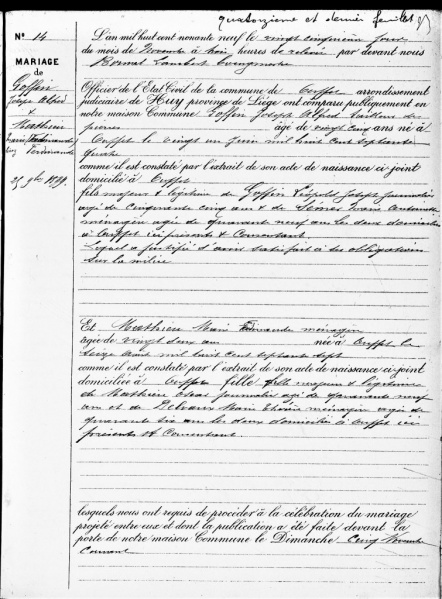 quatorzième et dernier feuillet
N° 14
MARIAGE
de
Goffin
Joseph Alfred
&
Mathieu
Marie
Fernande
25 9bre 1899.
L'an mil huit cent nonante neuf le vingt cinquième jour
du mois de Novembre à trois heures de relevée par devant nous
Bonnet Lambert Bourgmestre
Officier de l'Etat Civil de la commune de Ouffet arrondissement
judiciaire de Huy province de Liège ont comparu publiquement en
notre maison Commune Goffin Joseph Alfred tailleur de
pierres âgé de vingt cinq ans né à
Ouffet le vingt un juin mil huit cent septante
quatre
comme il est constaté par l'extrait de son acte de naissance ci-joint
domicilié à Ouffet
fils majeur & légitime de Goffin Léopold Joseph journalier
âgé de cinquante cinq ans & de Marie Antoinette
ménagère âgée de quarante neuf ans les deux domiciliés
à Ouffet ici présents & Consentant.
Lequel a justifié d'avoir satisfait à ses obligations
sur la milice
Et Mathieu Marie Fernande ménagère
âgée de vingt deux ans née à Ouffet le
seize août mil huit cent septante sept
comme il est constaté par l'extrait de son acte de naissance ci-joint
domiciliée à Ouffet fille majeure & légitime
de Mathieu journalier âgé de quarante neuf
ans et de Marie ménagère âgée de
quarante six ans les deux domiciliés à Ouffet ici
présents & Consentant.
lesquels nous ont requis de procéder à la célébration du mariage
projeté entre eux et dont la publication a été faite devant la
porte de notre maison Commune le Dimanche Cinq Novembre
Courant